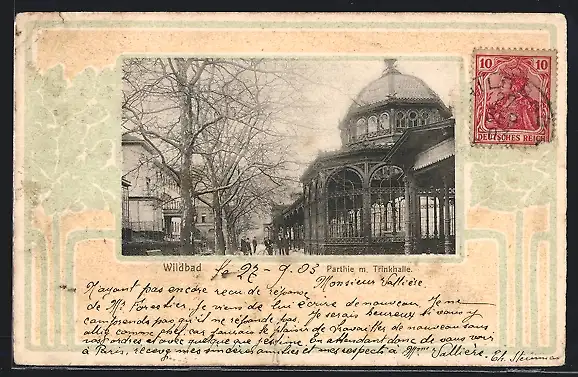 10 10
DEUTSCHES REICH
Wildbad le 27-9.03 Parthie m. Trinkhalle.
Monsieur Vallière
N'ayant pas encore reçu de réponse
de Mr Forestier, je viens de lui écrire de nouveau. Je ne
comprends pas qu'il ne réponde pas. Je serais heureux si vous y
alliez comme chef, car j'aurais le plaisir de travailler de nouveau sous
vos ordres et avec quelque En attendant donc de vous voir
à Paris, recevez mes sincères amitiés et mes respects à Mme Vallière.
Ch.